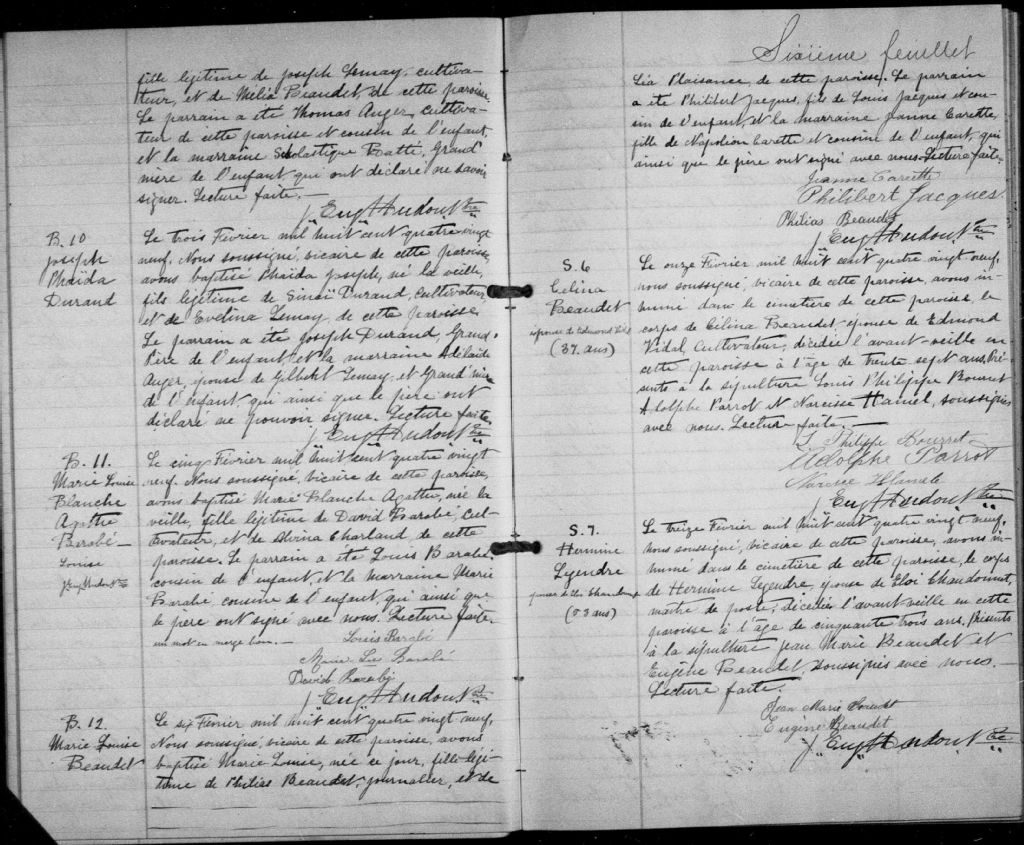 fille légitime de Joseph Lemay, cultiva-
teur, et de Mélia Beaudet, de cette paroisse.
Le parrain a été Thomas Auger cultiva-
teur de cette paroisse et cousin de l'enfant,
et la marraine Scholastique Ratté, Grand
mère de l'enfant qui ont déclaré ne savoir
signer. Lecture faite.
Eug. Hudon Ptre
B. 10
Joseph
Phaïda
Durand
Le trois Février mil huit cent quatre vingt
neuf. Nous soussigné, vicaire de cette paroisse,
avons baptisé Phaida Joseph, né la veille,
fils légitime de Sinaï Durand, cultivateur,
et de Evelina Lemay, de cette paroisse.
Le parrain a été Joseph Durand, Grand-
Père de l'enfant, et la marraine Adélaïde
Auger, épouse de Gilbert Lemay, et Grand'mère
de l'enfant, qui ainsi que le père ont
déclaré ne pouvoir signer. Lecture faite.
Eug. Hudon Ptre
B. 11.
Marie Louise
Blanche
Agathe
Barabé
Louise
Eug. Hudon Ptre
Le cinq Février mil huit cent quatre vingt
neuf. Nous soussigné, vicaire de cette paroisse,
avons baptisé Marie Blanche Agathe, née la
veille, fille légitime de David Barabé, cul-
tivateur, et de Alvina Charland de cette
paroisse. Le parrain a été Louis Barabé
cousin de l'enfant, et la marraine Marie
Barabé cousine de l'enfant, qui ainsi que
le père ont signé avec nous. Lecture faite.
un mot en marge bon. Louis Barabé
Marie Barabé
David Barabé
Eug. Hudon Ptre
B. 12
Marie Louise
Beaudet
Le six Février mil huit cent quatre vingt neuf,
Nous soussigné, vicaire de cette paroisse, avons
baptisé Marie Louise, née ce jour, fille légi-
time de Philias Beaudet, journalier, et de
Sixième feuillet
Léa Plaisance, de cette paroisse. Le parrain
a été Philibert Jacques, fils de Louis Jacques et cou-
sin de l'enfant, et la marraine Jeanne Carette,
fille de Napoléon Carette et cousine de l'enfant, qui
ainsi que le père ont signé avec nous. Lecture faite.
Jeanne Carette
Philibert Jacques
Philias Beaudet
Eug. Hudon Ptre
S. 6
Célina
Beaudet
épouse de Edmond Vidal
(37 ans)
Le onze Février mil huit cent quatre vingt neuf,
nous soussigné, vicaire de cette paroisse, avons in-
humé dans le cimetière de cette paroisse, le
corps de Célina Beaudet, épouse de Edmond
Vidal, Cultivateur, décédée l'avant veille en
cette paroisse à l'âge de trente sept ans. Pré-
sents à la sépulture Louis Philippe Bourret
Adolphe Parrot et Narcisse Hamel, soussignés
avec nous. Lecture faite.
L. Philippe Bourret
Adolphe Parrot
Narcisse Hamel
Eug. Hudon Ptre
S. 7.
Hermine
Legendre
(53 ans)
Le treize Février mil huit cent quatre vingt neuf,
nous soussigné, vicaire de cette paroisse, avons in-
humé dans le cimetière de cette paroisse, le corps
de Hermine Legendre, épouse de Eloi Chandonnet,
maître de poste, décédée l'avant veille en cette
paroisse à l'âge de cinquante trois ans. Présents
à la sépulture Jean Marie Beaudet et
Eugène Beaudet soussignés avec nous.
Lecture faite.
Jean Marie Beaudet
Eugène Beaudet
Eug. Hudon Ptre